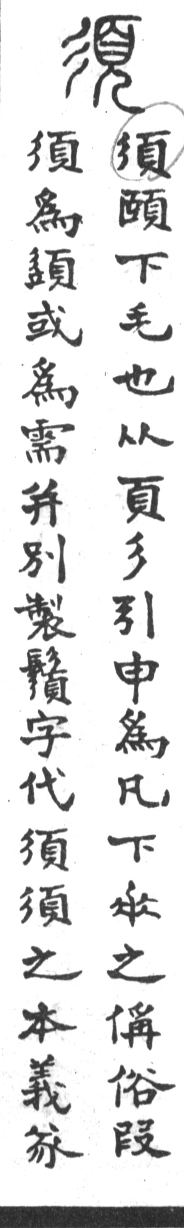 須
須頤下毛也从頁彡引申為凡下𠂹之偁俗叚
須為䇓或為需并別製鬚字代須須之本義㒸